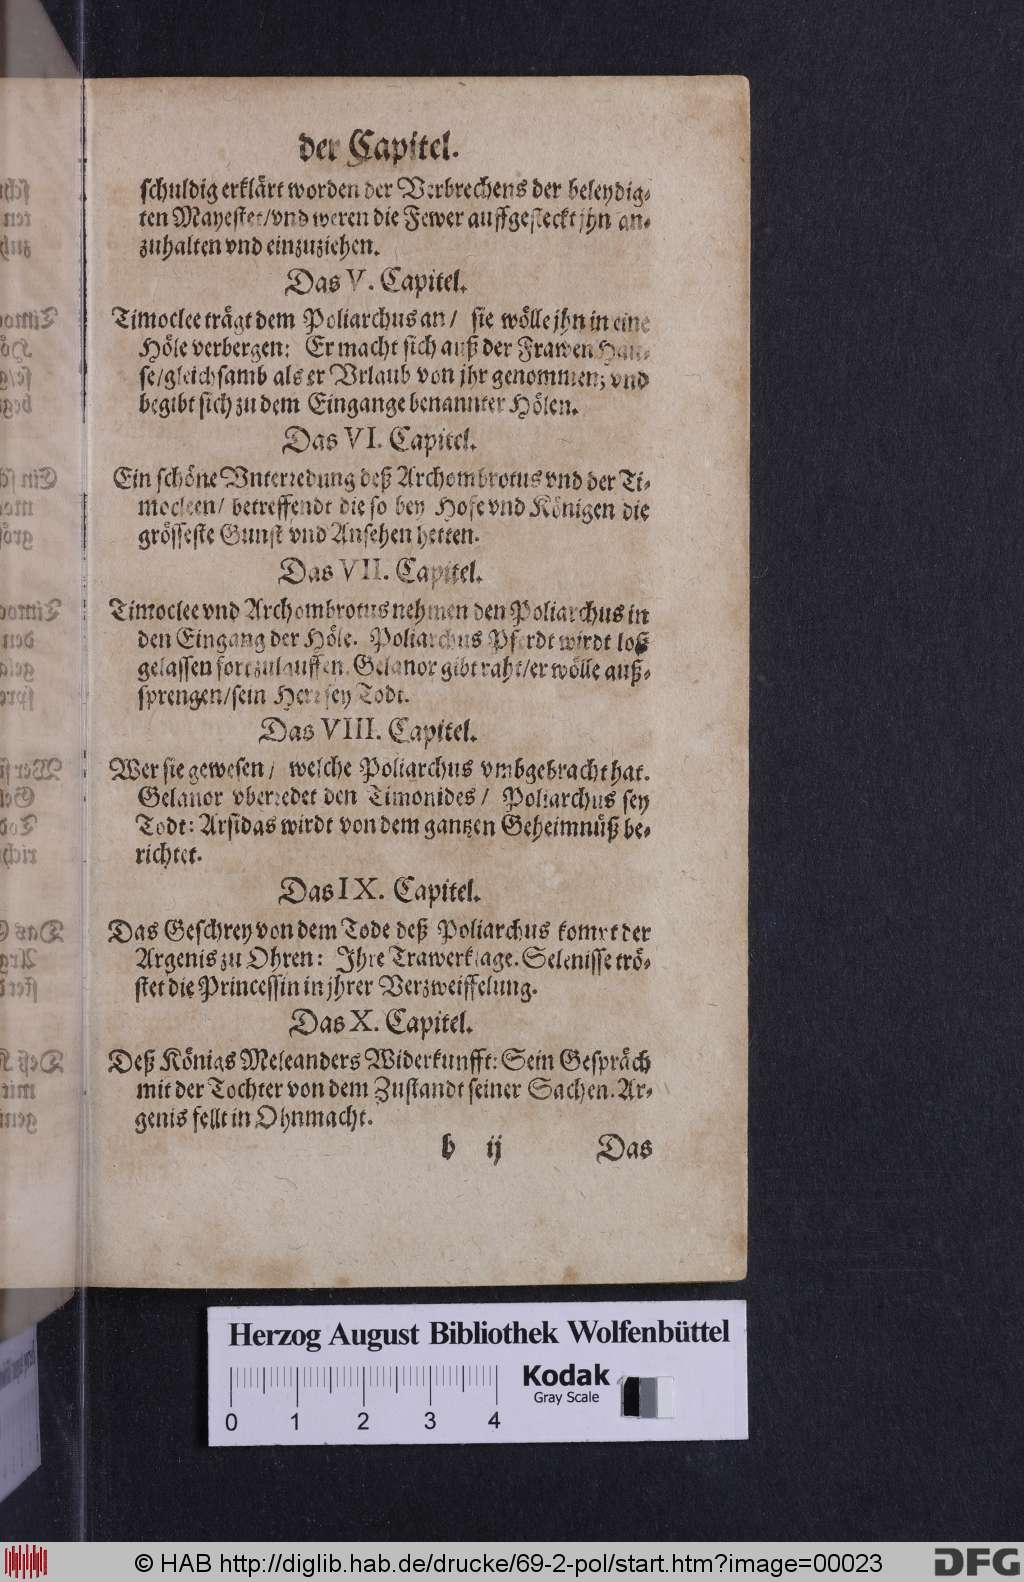 der Capitel.
schuldig erklärt worden der Verbrechens der beleydig-
ten Mayestet/vnd weren die Fewer auffgesteckt jhn an-
zuhalten vnd einzuziehen.
Das V. Capitel.
Timoclee trägt dem Poliarchus an/ sie wölle jhn in eine
Höle verbergen: Er macht sich auß der Frawen Hau-
se/gleichsamb als er Vrlaub von jhr genommen; vnd
begibt sich zu dem Eingange benannter Hölen.
Das VI. Capitel.
Ein schöne Vnterredung deß Archombrotus vnd der Ti-
mocleen/ betreffendt die so bey Hofe vnd Königen die
grösseste Gunst vnd Ansehen hetten.
Das VII. Capitel.
Timoclee vnd Archombrotus nehmen den Poliarchus in
den Eingang der Höle. Poliarchus Pferdt wirdt loß
gelassen fortzulauffen. Gelanor gibt raht/er wölle auß-
sprengen/sein Herr sey Todt.
Das VIII. Capitel.
Wer sie gewesen/ welche Poliarchus vmbgebracht hat.
Gelanor vberredet den Timonides/ Poliarchus sey
Todt: Arsidas wirdt von dem gantzen Geheimnüß be-
richtet.
Das IX. Capitel.
Das Geschrey von dem Tode deß Poliarchus komt der
Argenis zu Ohren: Ihre Trawerklage. Selenisse trö-
stet die Princessin in jhrer Verzweiffelung.
Das X. Capitel.
Deß Königs Meleanders Widerkunfft: Sein Gespräch
mit der Tochter von dem Zustandt seiner Sachen. Ar-
genis fellt in Ohnmacht.
b ij Das
Herzog August Bibliothek Wolfenbüttel
Kodak
Gray Scale
0 1 2 3 4
© HAB http://diglib.hab.de/drucke/69-2-pol/start.htm?image=00023
DFG